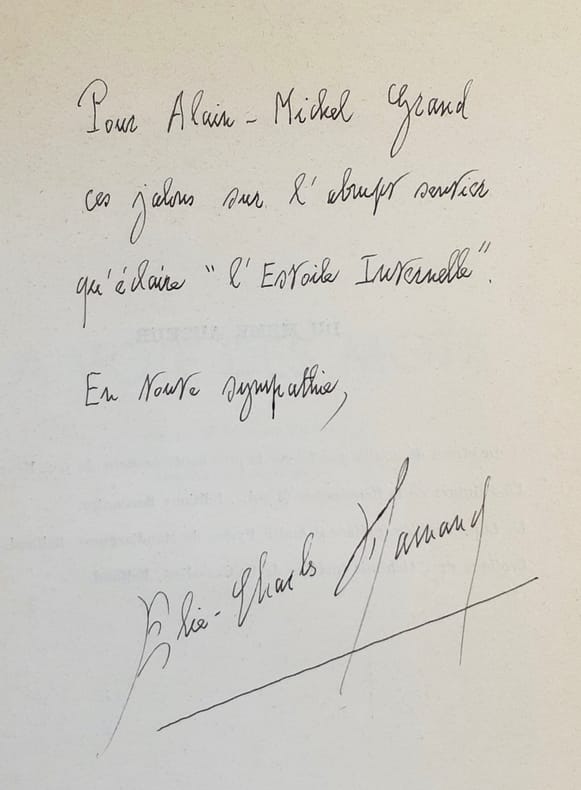 Pour Alain-Michel Grand
ces jalons sur l'abrupt sentier
qu'éclaire "l'Estoile Internelle".
En toute sympathie,
Elie-Charles Flamand
DU MÊME AUTEUR